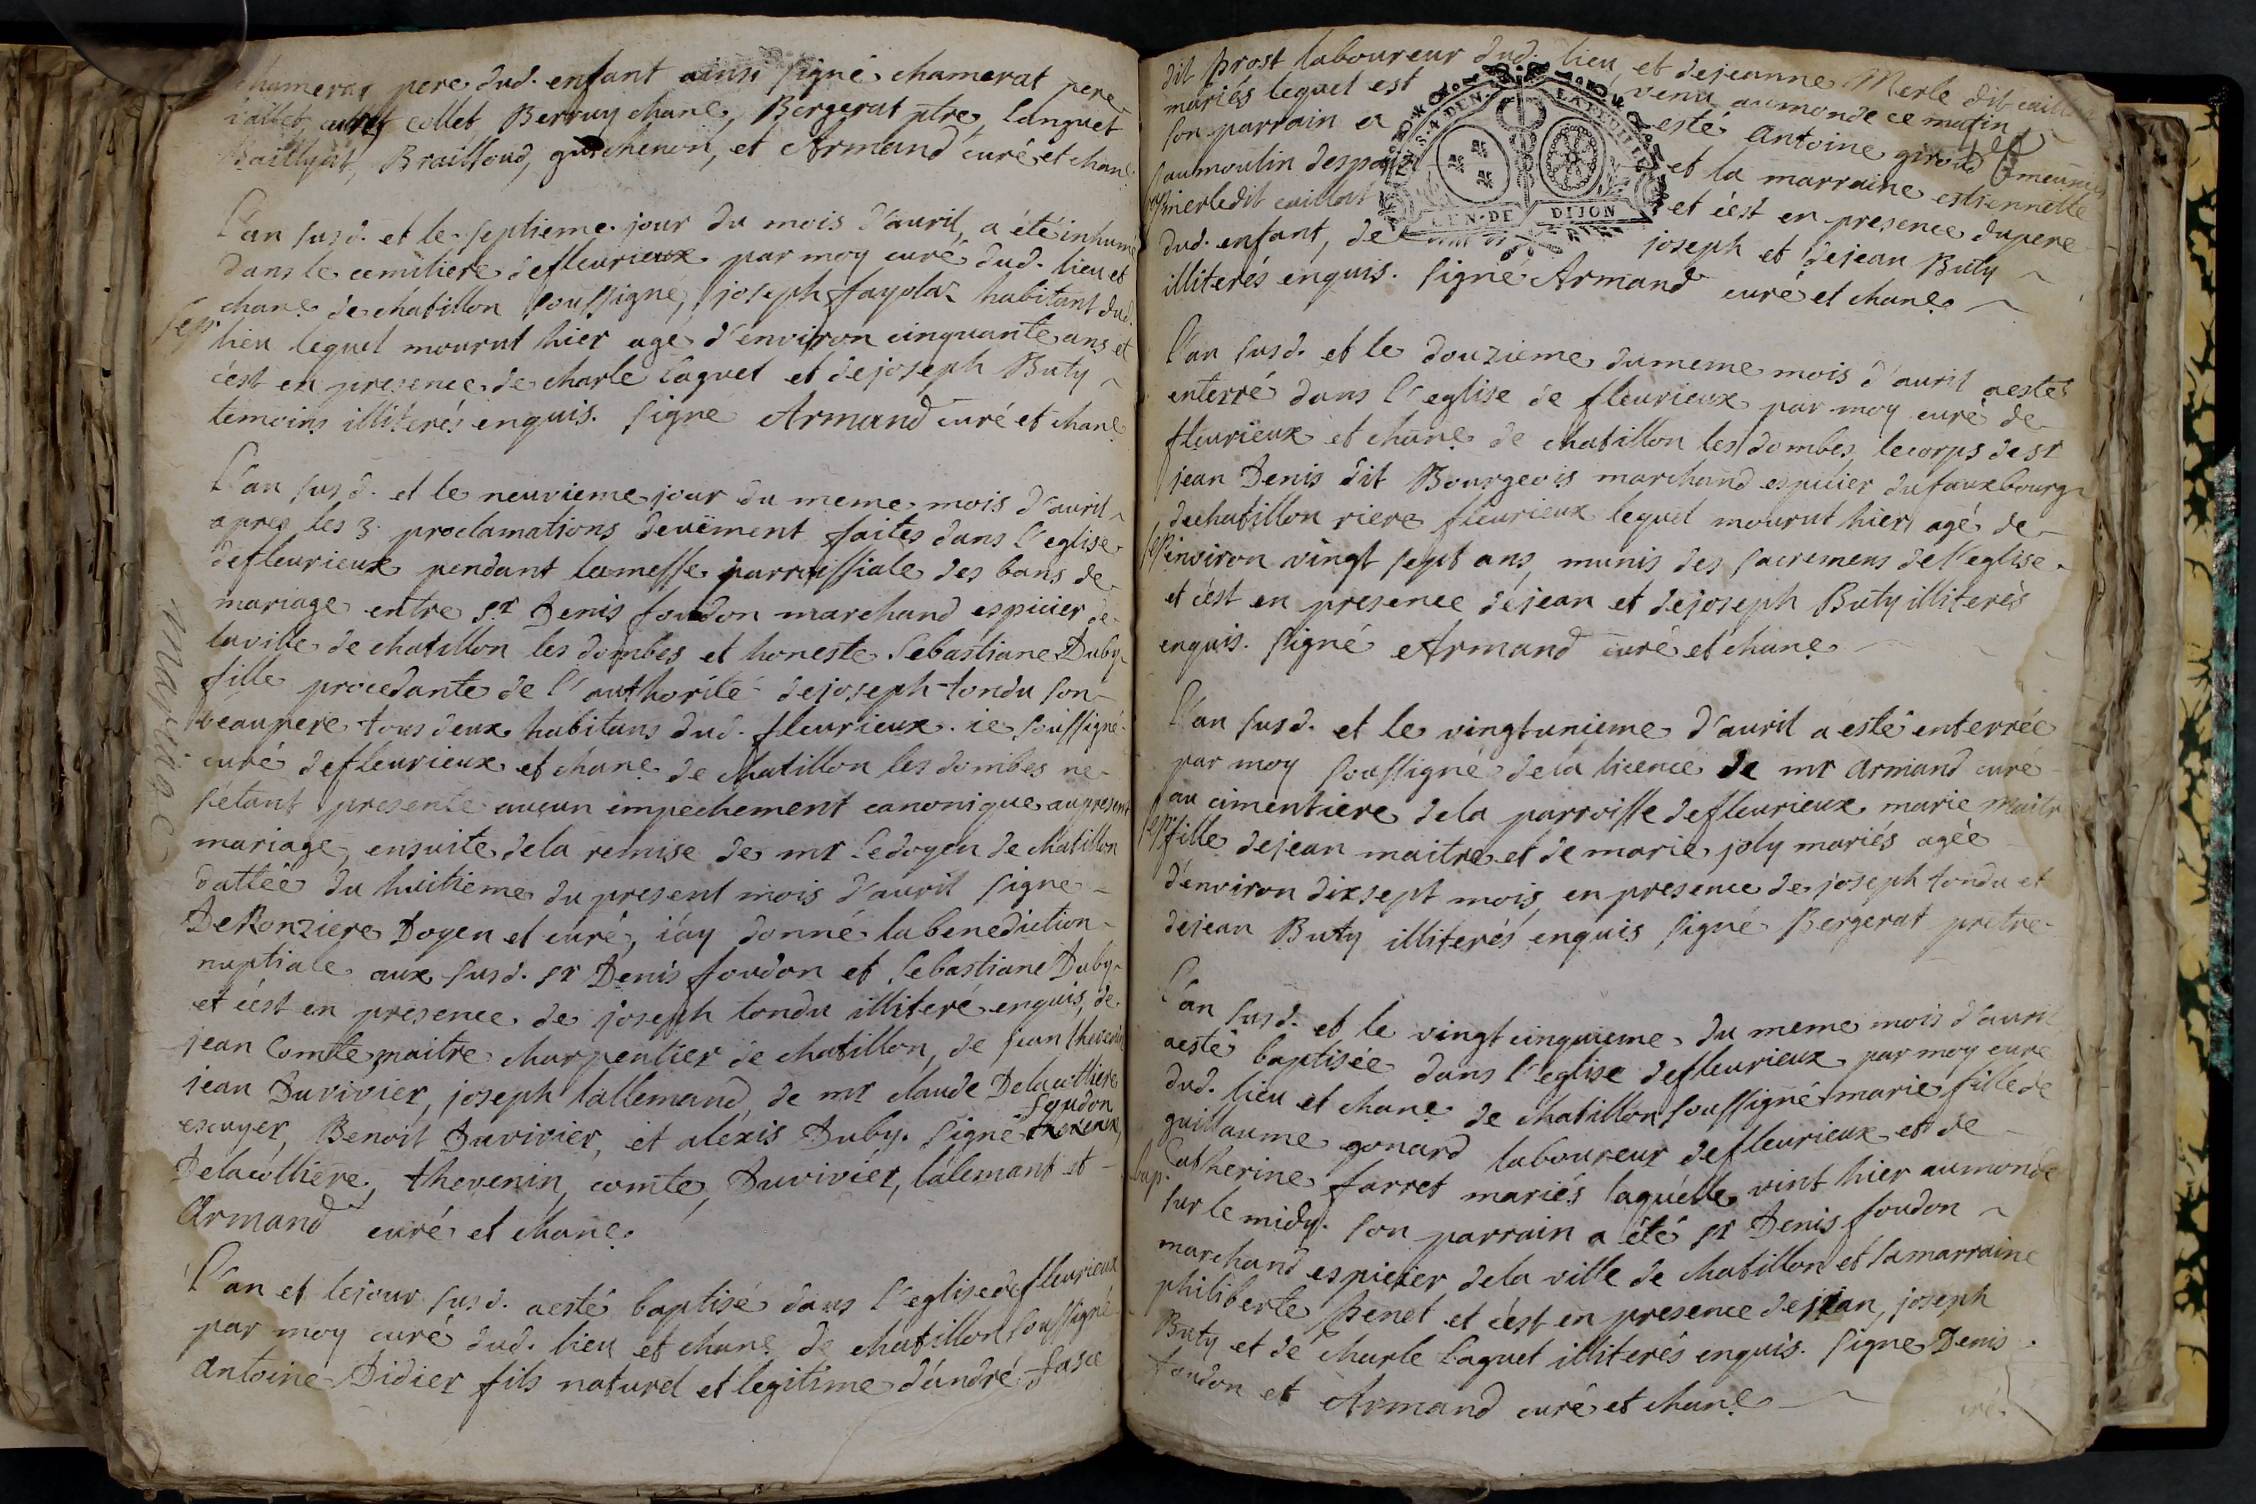 chamerat pere dud. enfant ainsi signé chamerat pere
collet Berruy chane, Bergerat ptre, Languet
Braissoud, guichenon, et Armand curé et chane
L'an susd. et le septieme jour du mois d'auril, a été inhumé
dans le cemitiere de fleurieux par moy curé dud. lieu et
chane de chatillon soussigné, joseph fayolaz habitant dud.
sep. lieu lequel mourut hier agé d'environ cinquante ans et
c'est en presence de charle Laguet et de joseph Buty
temoins illiterés enquis. signé Armand curé et chane
L'an susd. et le neuvieme jour du meme mois d'auril
apres les 3. proclamations deuëment faites dans l'eglise
de fleurieux pendant la messe parroissiale des bans de
mariage entre sr Denis foudon marchand espicier de
la ville de chatillon les dombes et honeste Sebastiane Duby
fille procedante de l'authorité de joseph tondu son
beaupere tous deux habitans dud. fleurieux. ie soussigné
mariage
curé de fleurieux et chane de chatillon les dombes ne
s'etant presenté aucun impechement canonique au present
mariage, ensuite de la remise de mr le doyen de chatillon
dattée du huitieme du present mois d'auril signe
DeRonziere Doyen et curé, i'ay donné la benediction
nuptiale aux susd. sr Denis foudon et Sebastiane Duby
et c'est en presence de joseph tondu illiteré enquis, de
jean Comte maitre charpentier de chatillon, de jean thevenin
jean Duvivier, joseph lallemand, de mr claude Delacolliere
escuyer, Benoit Duvivier, et alexis Duby. signé foudon
Delacolliere, thevenin, comte, Duvivier, lalemant et
Armand curé et chane.
L'an et le jour susd. a esté baptisé dans l'eglise de fleurieux
par moy curé dud. lieu et chane de chatillon soussigné
antoine Didier fils naturel et legitime d'andré fasce
dit Prost laboureur dud. lieu et de jeanne Merle dit caillat
mariés lequel est venu au monde ce matin
son parrain a esté antoine giroud meunier
au moulin d'espois et la marraine estiennette
merle dit caillat et c'est en presence du pere
dud. enfant, de joseph et de jean Buty
illiterés enquis. signé Armand curé et chane
EXTRAITS
GEN. DE DIJON
L'an susd. et le douzieme du meme mois d'auril a esté
enterré dans l'eglise de fleurieux par moy curé de
fleurieux et chane de chatillon les dombes, le corps de sr
jean Denis dit Bourgeois marchand espicier du fauxbourg
de chatillon riere fleurieux lequel mourut hier agé de
sep. environ vingt sept ans, munis des sacremens de l'eglise
et c'est en presence de jean et de joseph Buty illiterés
enquis. signé Armand curé et chane
L'an susd. et le vingtunieme d'auril a esté enterrée
par moy soussigné de la licence de mr armand curé
au cimentiere de la parroisse de fleurieux marie maitre
sep. fille de jean maitre et de marie joly mariés agée
d'environ dixsept mois en presence de joseph tondu et
de jean Buty illiterés enquis signé Bergerat pretre
L'an susd. et le vingt cinquieme du meme mois d'auril
a esté baptisée dans l'eglise de fleurieux par moy curé
dud. lieu et chane de chatillon soussigné marie fille de
guillaume gonard laboureur de fleurieux et de
bap. Catherine farret mariés laquelle vint hier au monde
sur le midy. son parrain a été sr Denis foudon
marchand espicier de la ville de chatillon et sa marraine
philiberte Penet et c'est en presence de jean, joseph
Buty et de charle Laguet illiterés enquis. signé Denis
foudon et Armand curé et chane